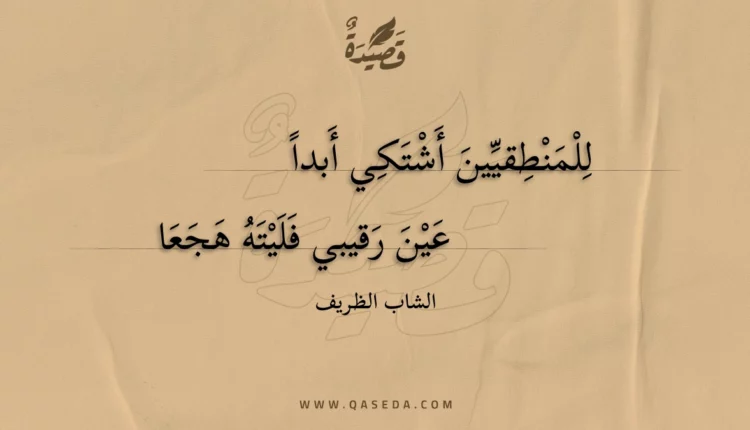 قَصِيدَةٌ
لِلْمَنْطِقيِّينَ أَشْتَكِي أَبداً
عَيْنَ رَقيبي فَلَيْتَهُ هَجَعَا
الشاب الظريف
WWW.QASEDA.COM